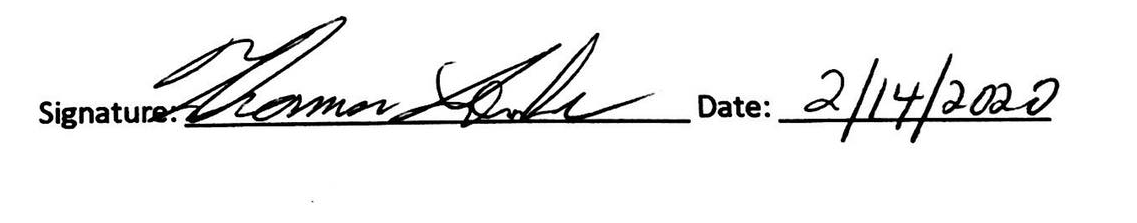 Signature: Thomas Date: 2/14/2020